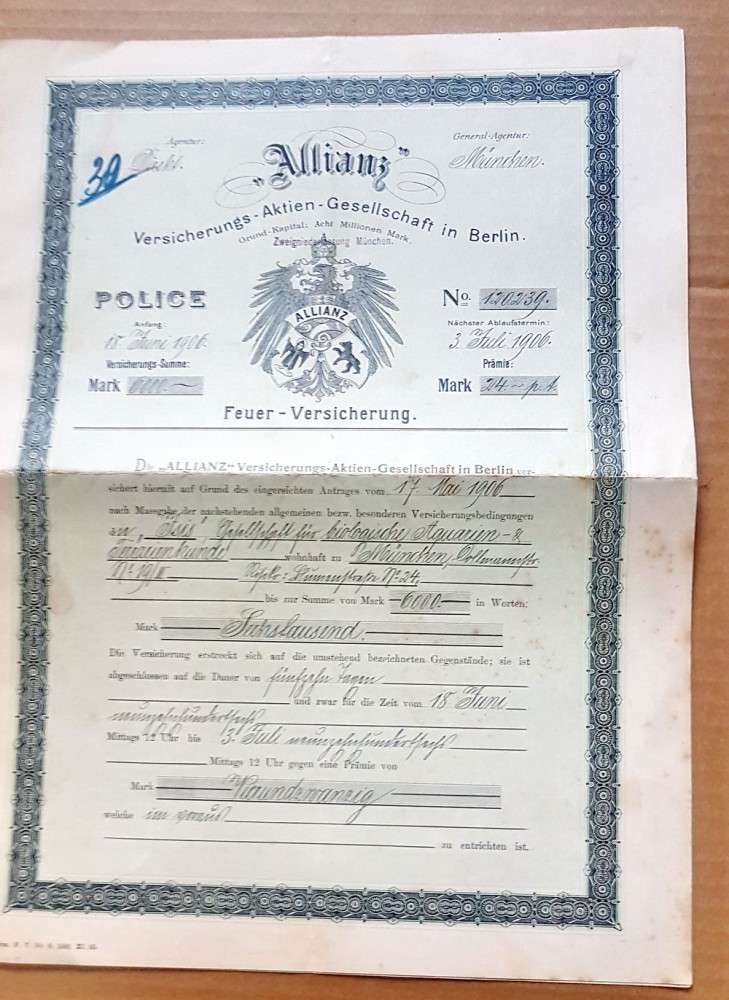 Agentur:
Direkt.
39
General-Agentur:
München.
„Allianz“
Versicherungs-Aktien-Gesellschaft in Berlin.
Grund-Kapital: Acht Millionen Mark.
Zweigniederlassung München.
POLICE
No. 120239.
ALLIANZ
Anfang:
18 Juni 1906.
Nächster Ablaufstermin:
3. Juli 1906.
Versicherungs-Summe:
Mark 6000.—
Prämie:
Mark 24.—
Feuer-Versicherung.
Die „ALLIANZ“ Versicherungs-Aktien-Gesellschaft in Berlin ver-
sichert hiermit auf Grund des eingereichten Antrages vom 17. Mai 1906
nach Massgabe der nachstehenden allgemeinen bezw. besonderen Versicherungsbedingungen
an „Isis“, Gesellschaft für biologische Aquarien- &
Terrarienkunde wohnhaft zu München,
Blumenstraße No. 24.
bis zur Summe von Mark —6000.— in Worten:
Mark Sechstausend.
Die Versicherung erstreckt sich auf die umstehend bezeichneten Gegenstände; sie ist
abgeschlossen auf die Dauer von fünfzehn Tagen
und zwar für die Zeit vom 18. Juni
neunzehnhundertsechs
Mittags 12 Uhr bis 3. Juli neunzehnhundertsechs
Mittags 12 Uhr gegen eine Prämie von
Mark Vierundzwanzig
welche im voraus
zu entrichten ist.